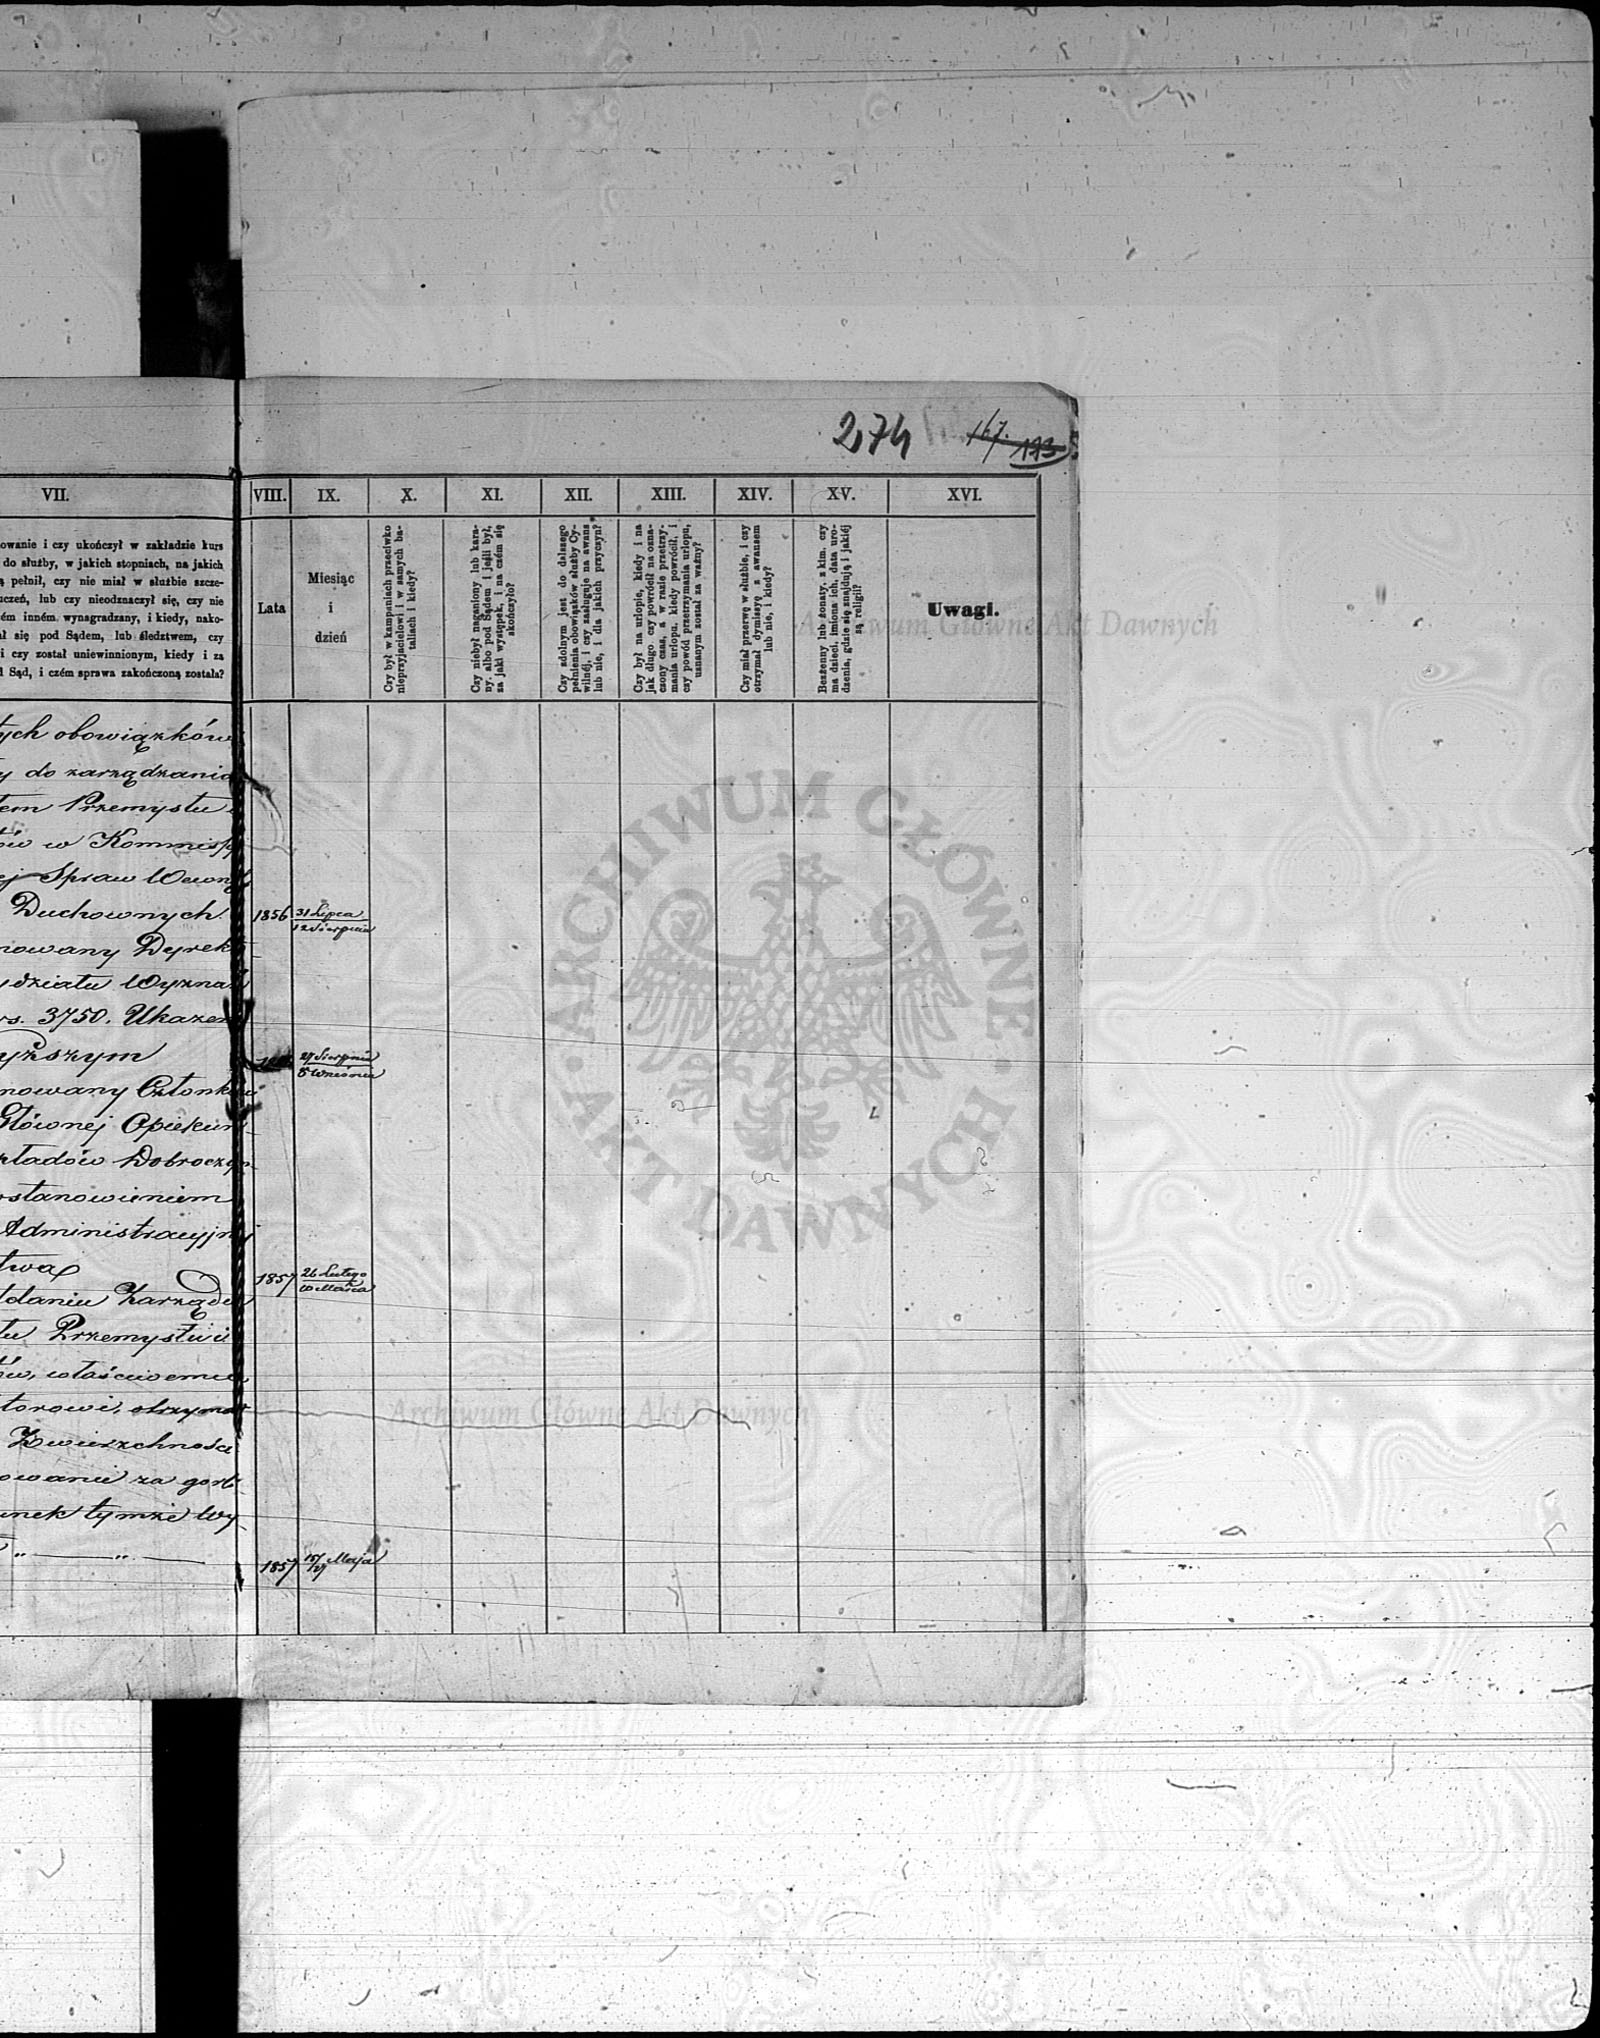 2,74
167.
113
VII.
VIII.
IX.
X.
XI.
XII.
XIII.
XIV.
XV.
XVI.
owanie i czy ukończył w zakładzie kurs
do służby, w jakich stopniach, na jakich
pełnił, czy nie miał w służbie szcze-
uczeń, lub czy nieodznaczył się, czy nie
ém inném wynagradzany, i kiedy, nako-
ał się pod Sądem, lub śledztwem, czy
i czy został uniewinnionym, kiedy i za
Sąd, i czém sprawa zakończoną została?
Lata
Miesiąc
i
dzień
Czy był w kampaniach przeciwko
nieprzyjacielowi i w samych ba-
taliach i kiedy?
Czy niebył naganiony lub kara-
ny, albo pod Sądem i jeśli był,
za jaki występek, i na czém się
skończyło?
Czy zdolnym jest do dalszego
pełnienia obowiązków służby Cy-
wilnéj, i czy zasługuje na awans
lub nie, i dla jakich przyczyn?
Czy był na urlopie, kiedy i na
jak długo czy powrócił na ozna-
czony czas, a w razie przetrzy-
mania urlopu, kiedy powrócił, i
czy powód przetrzymania urlopu,
uznanym został za ważny?
Czy miał przerwę w służbie, i czy
otrzymał dymisyę z awansem
lub nie, i kiedy?
Bezżenny lub żonaty, z kim, czy
ma dzieci, imiona ich, data uro-
dzenia, gdzie się znajdują i jakiéj
są religii?
Uwagi.
ych obowiązków
y do zarządzania
em Przemysłu
ów w Kommissy
ej Spraw Wewn
Duchownych 1856 31 Lipca
12 Sierpnia
nowany Dyrek
ydziału Wyznań
rs. 3750. Ukazem
yższym 27 Sierpnia
8 Września
nowany Członk
Głównej Opiekuń
kładów Dobroczyn
ostanowieniem
Administracyjnej
twa 1857 26 Lutego
10 Marca
ddaniu Zarządu
łu Przemysłu i
ów, właściwemu
torowi, otrzymał
Zwierzchności
owanie za gorl
unek tymże Wy
„ — „ — 1857 15/27 Maja
Archiwum Główne Akt Dawnych
ARCHIWUM GŁÓWNE AKT DAWNYCH
Archiwum Główne Akt Dawnych